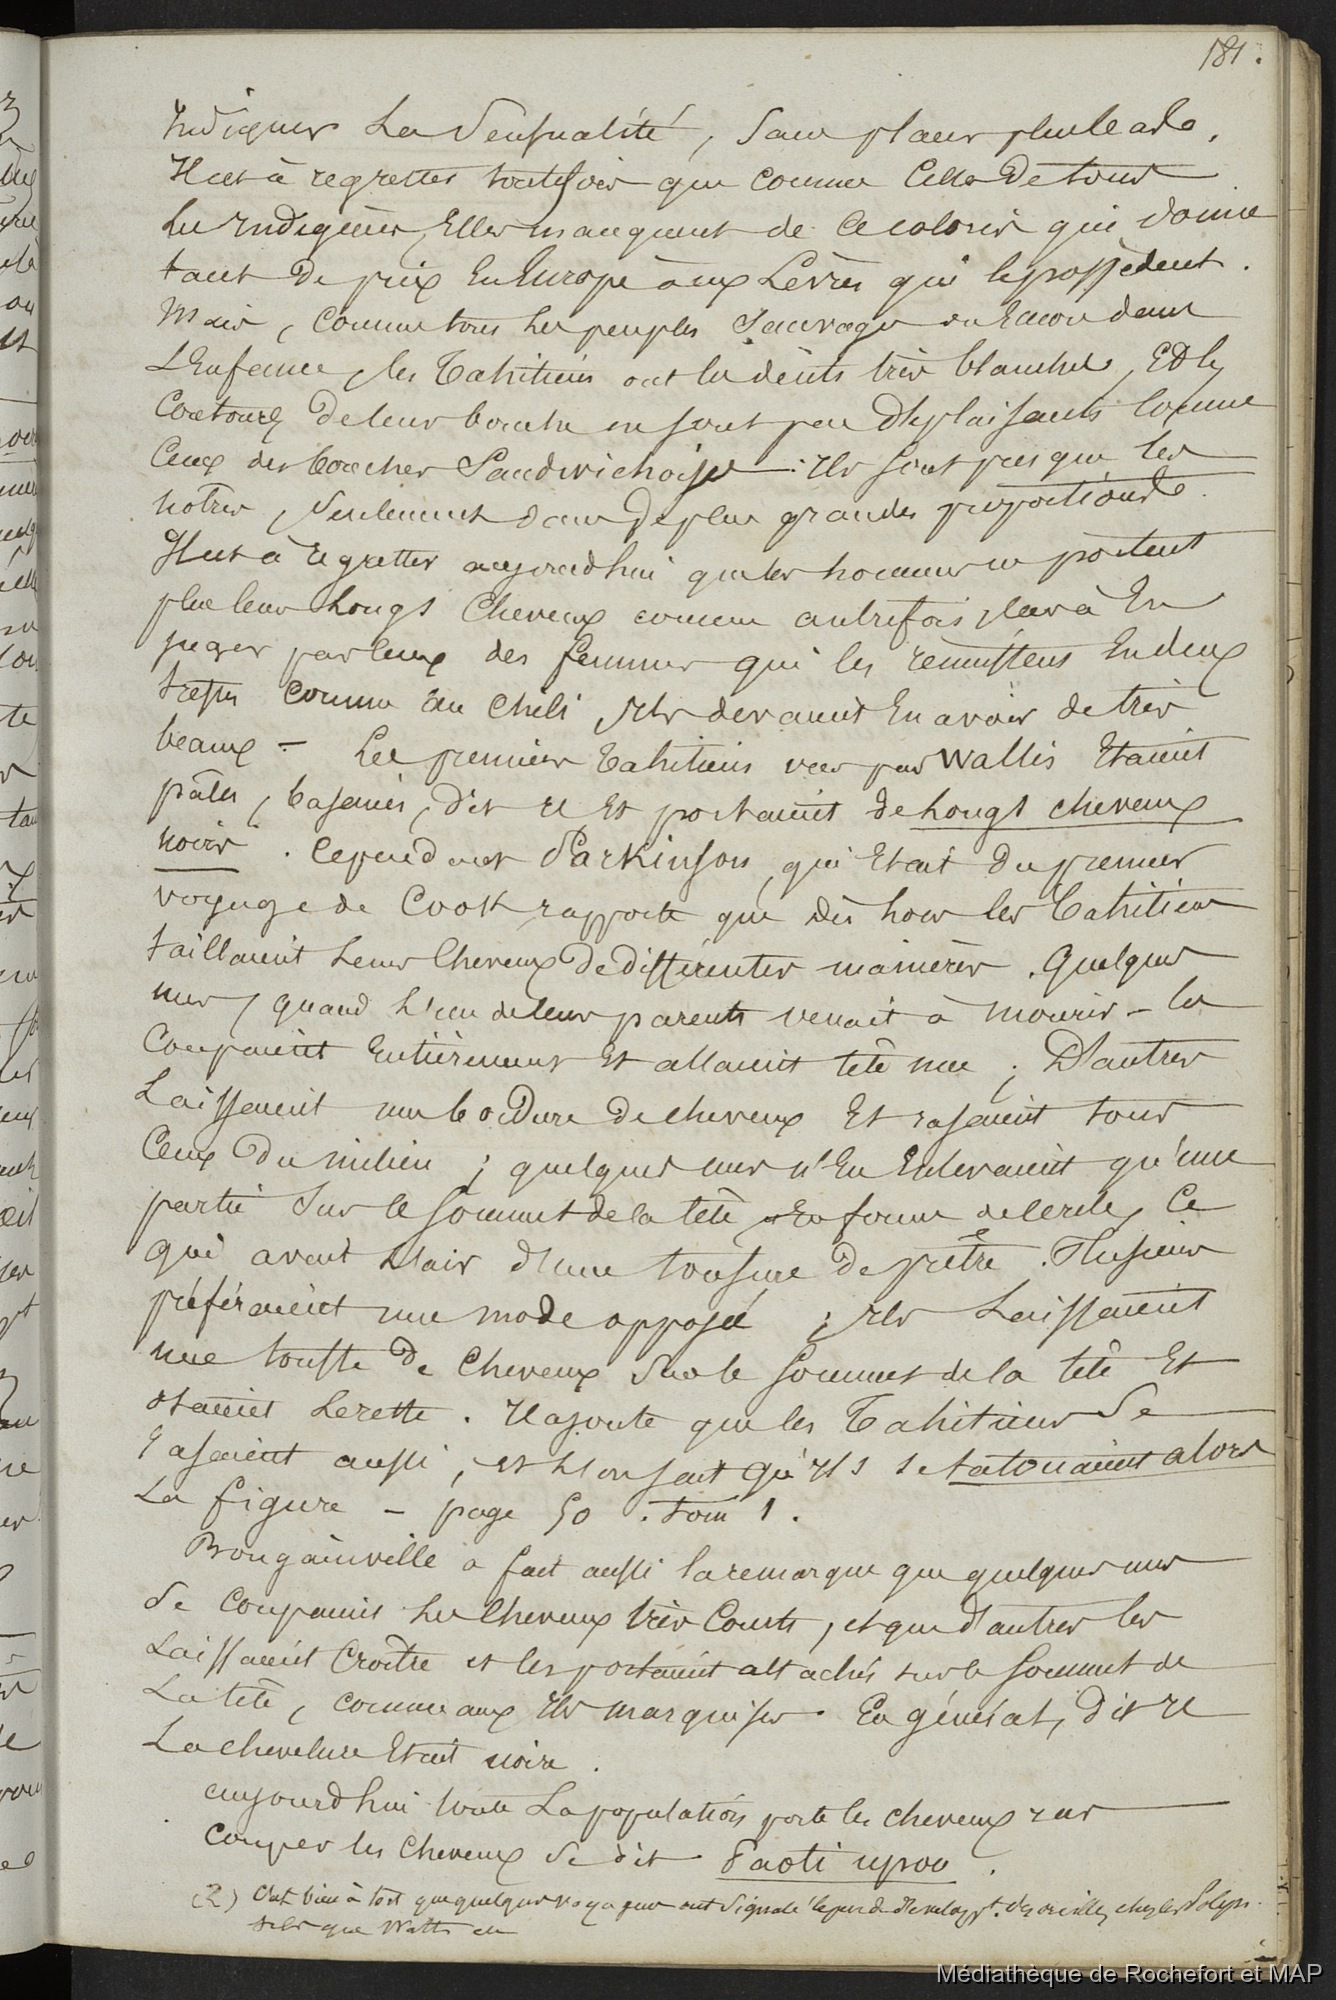 181.
Indiquer La Sensualité, Sans
Il est à regretter toutefois que comme Celles De tous
Les Indigènes, Elles manquent de ce coloris qui donne
tant De prix En Europe aux Lèvres qui le possèdent.
Mais, comme tous les peuples Sauvages ou Encore dans
L'Enfance, les Tahitiens ont les dents très blanches, Et les
Contours De leur bouche ne sont pas Déplaisants comme
Ceux des bouches Sandwichoises. Ils sont presque les
nôtres, Seulement dans De plus grandes proportions.
Il est à regretter aujourd'hui que les hommes ne portent
plus leurs Longs Cheveux comme autrefois, car à En
juger par Ceux des femmes qui les réunissent En deux
tresses comme au Chili, Ils devaient En avoir de très
beaux - Les premiers Tahitiens vus par Wallis Etaient
pâles, basanés, dit il Et portaient de Longs cheveux
noirs. Cependant Parkinson, qui Etait Du premier
voyage de Cook rapporte que dès Lors les Tahitiens
taillaient Leurs Cheveux De différentes manières. Quelques
uns, quand L'un de leurs parents venait à mourir - les
Coupaient Entièrement Et allaient tête nue ; D'autres
Laissaient une bordure De cheveux Et rasaient tous
Ceux Du milieu ; quelques uns n'En Enlevaient qu'une
partie Sur le sommet de la tête, En forme de cercle, Ce
qui avait L'air d'une tonsure De prêtre. Plusieurs
préféraient une mode opposée ; Ils Laissaient
une touffe De Cheveux Sur le sommet de la tête Et
otaient Le reste. Il ajoute que les Tahitiens Se
rasaient aussi, et L'on sait qu'Ils se tatouaient alors
La figure - page 50. tom 1.
Bougainville a fait aussi la remarque que quelques uns
Se Coupaient Les Cheveux très Courts, et que d'autres les
Laissaient Croître et les portaient attachés sur le sommet de
La tête, comme aux Iles Marquises. En général, Dit il
La chevelure Etait noire.
aujourd'hui toute La population porte les cheveux ras
Couper les Cheveux Se dit Paoti upoo.
(2) C'est bien à tort que quelques voyageurs ont Signalé le peu de Développt. des oreilles chez les Polyn.
tels que Watts
Médiathèque de Rochefort et MAP